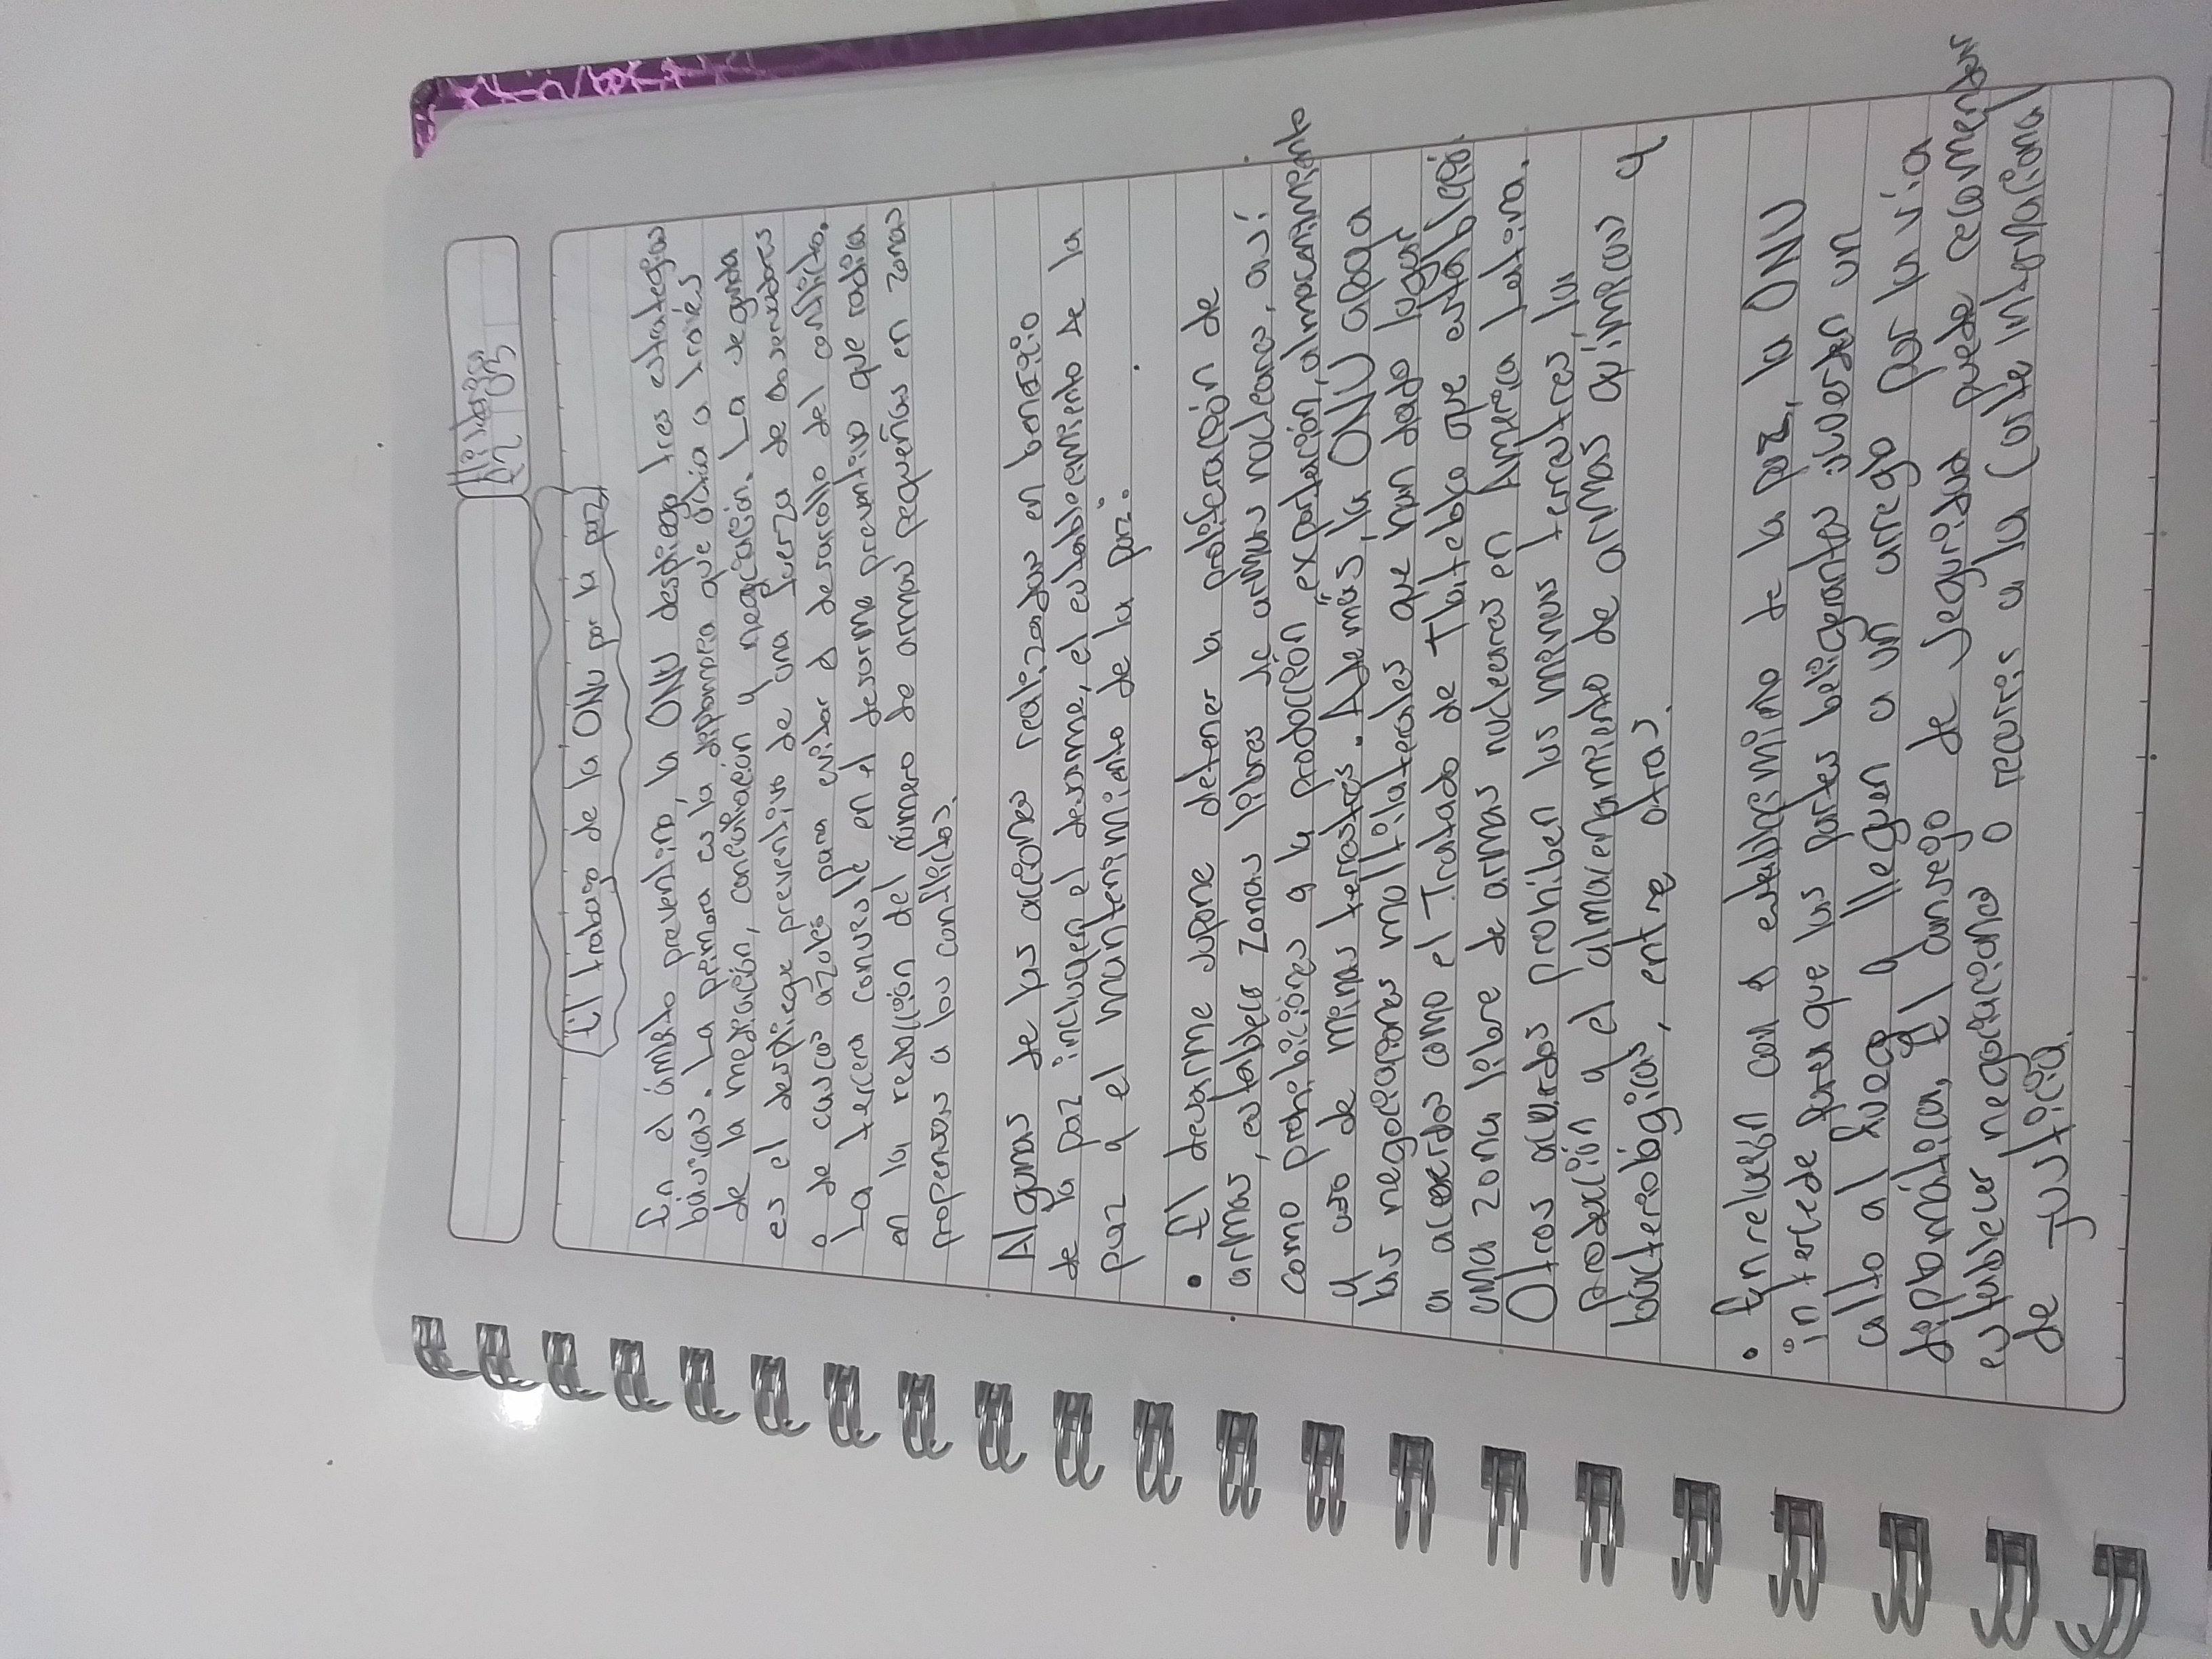 Hilda
12 03
El trabajo de la ONU por la paz
En el ámbito preventivo, la ONU despliega tres estrategias
básicas. La primera es la diplomacia que actúa a través
de la mediación, conciliación y negociación. La segunda
es el despliegue preventivo de una fuerza de observadores
o de cascos azules para evitar el desarrollo del conflicto.
La tercera consiste en el desarme preventivo que radica
en la reducción del número de armas pequeñas en zonas
propensas a los conflictos.
Algunas de las acciones realizadas en beneficio
de la paz incluyen el desarme, el establecimiento de la
paz y el mantenimiento de la paz.
• El desarme supone detener la proliferación de
armas, establece zonas libres de armas nucleares, así
como prohibiciones a la producción exportación, almacenamiento
y uso de minas terrestres. Además, la ONU apoya
las negociaciones multilaterales que han dado lugar
a acuerdos como el Tratado de Tlatelolco que estableció
una zona libre de armas nucleares en América Latina.
Otros acuerdos prohiben las menas terrestres, la
producción y el almacenamiento de armas químicas y
bacteriológicas, entre otras.
• En relación con el establecimiento de la paz, la ONU
intercede para que las partes beligerantes acuerden un
alto al fuego y lleguen a un arreglo por la vía
diplomática, El consejo de seguridad puede recomendar
establecer negociaciones o recurrir a la Corte Internacional
de Justicia.